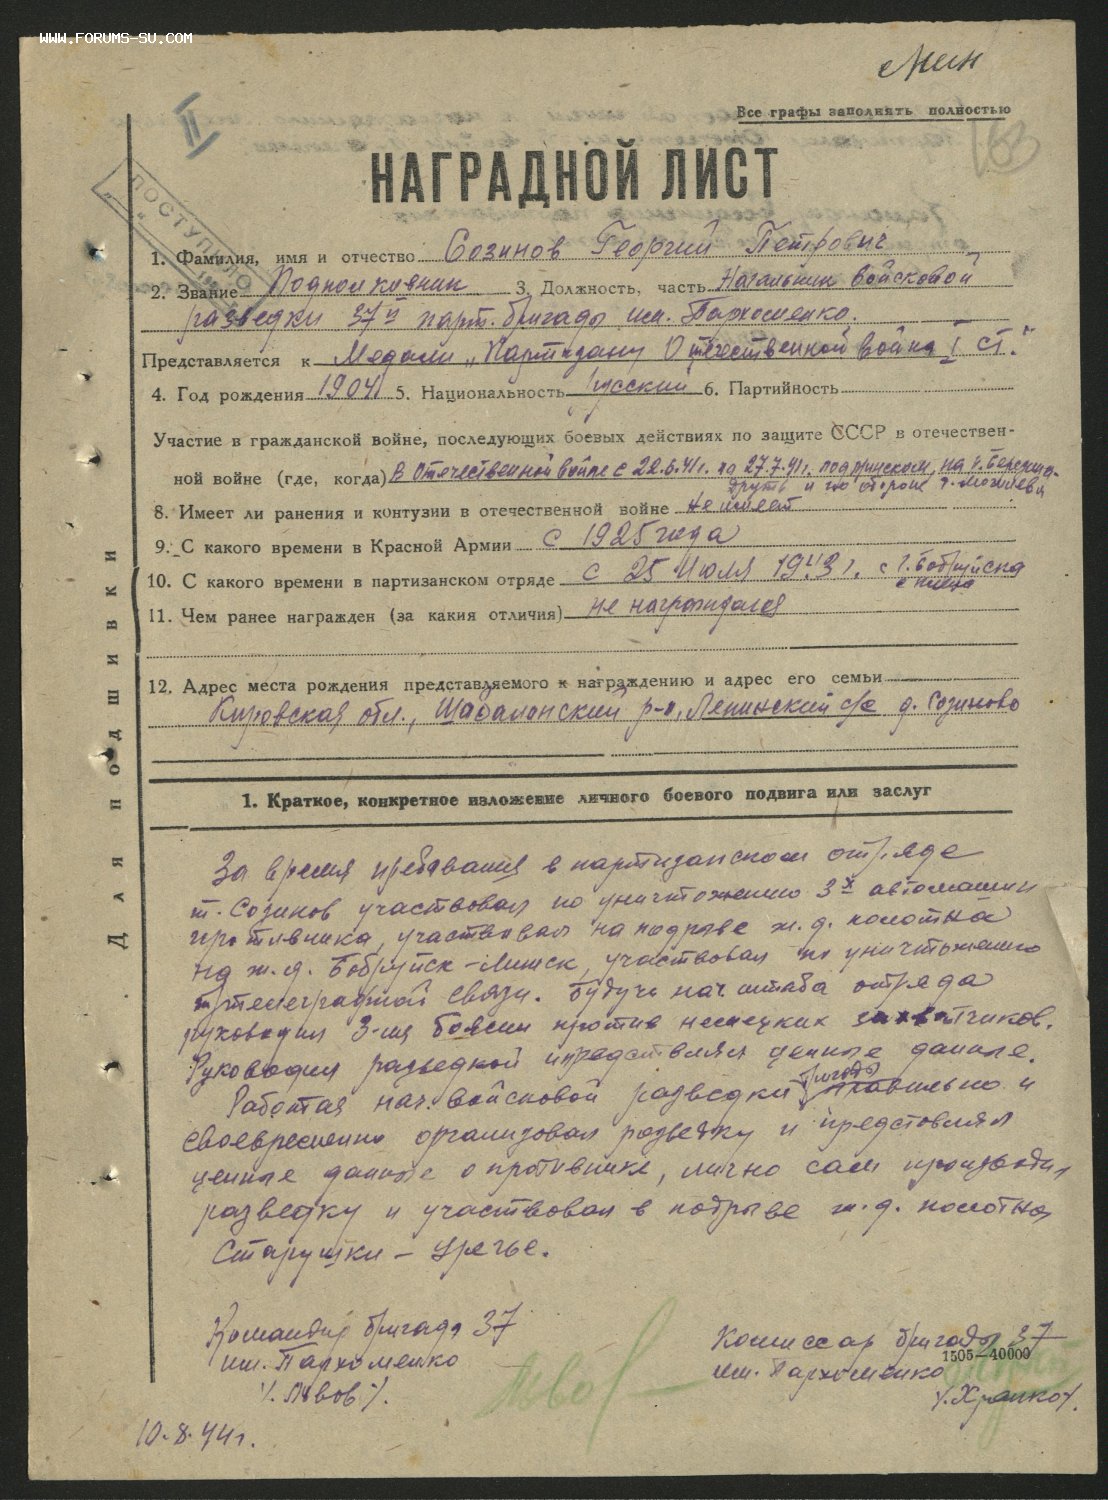 WWW.FORUMS-SU.COM
Мин
Все графы заполнять полностью
II
163
ПОСТУПИЛО
НАГРАДНОЙ ЛИСТ
1. Фамилия, имя и отчество Созинов Георгий Петрович
2. Звание Подполковник 3. Должность, часть Начальник войсковой
разведки 37й парт. бригады им. Пархоменко.
Представляется к Медали „Партизану Отечественной войны I ст."
4. Год рождения 1904 5. Национальность русский 6. Партийность
Участие в гражданской войне, последующих боевых действиях по защите СССР в отечествен-
ной войне (где, когда) В Отечественной войне с 22.6.41г. по 27.7.41г. под Минском, на р. Березина-
Друть и по обороне г. Могилева
8. Имеет ли ранения и контузии в отечественной войне не имеет
9. С какого времени в Красной Армии с 1925 года
10. С какого времени в партизанском отряде с 25 Июля 1943 г. с г. Бобруйска
с плена
11. Чем ранее награжден (за какия отличия) не награждался
12. Адрес места рождения представляемого к награждению и адрес его семьи
Кировская обл., Шабалинский р-н, Ленинский с/с д. Созиново
Для подшивки
1. Краткое, конкретное изложение личного боевого подвига или заслуг
За время пребывания в партизанском отряде
т. Созинов участвовал по уничтожению 3х автомашин
противника, участвовал на подрыве ж.д. полотна
на ж.д. Бобруйск-Минск, участвовал по уничтожению
телеграфной связи. Будучи нач. штаба отряда
руководил 3-мя боями против немецких захватчиков.
Руководил разведкой и представлял ценные данные.
Работая нач. войсковой разведки бригады правильно и
своевременно организовал разведку и представлял
ценные данные о противнике, лично сам производил
разведку и участвовал в подрыве ж.д. полотна
Старушки - Уречье.
Командир бригады 37
им. Пархоменко
/. Львов /.
Комиссар бригады 37
1505—40000
им. Пархоменко
/. Храпко /.
10.8.44г.